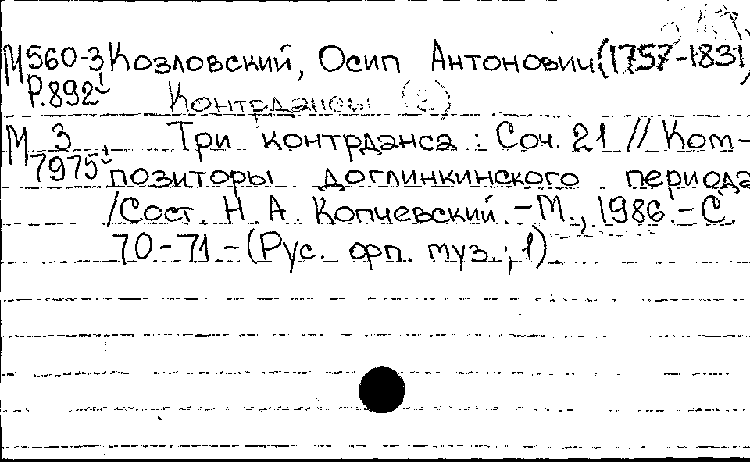 М560-3 Козловский, Осип Антонович (1757-1831)
Р.892 Контрдансы
М 3 Три контрданса : Соч. 21 // Ком-
7975 позиторы доглинкинского периода
/Сост. Н. А. Копчевский. – М., 1986. – С.
70-71 – (Рус. фп. муз.; 1)